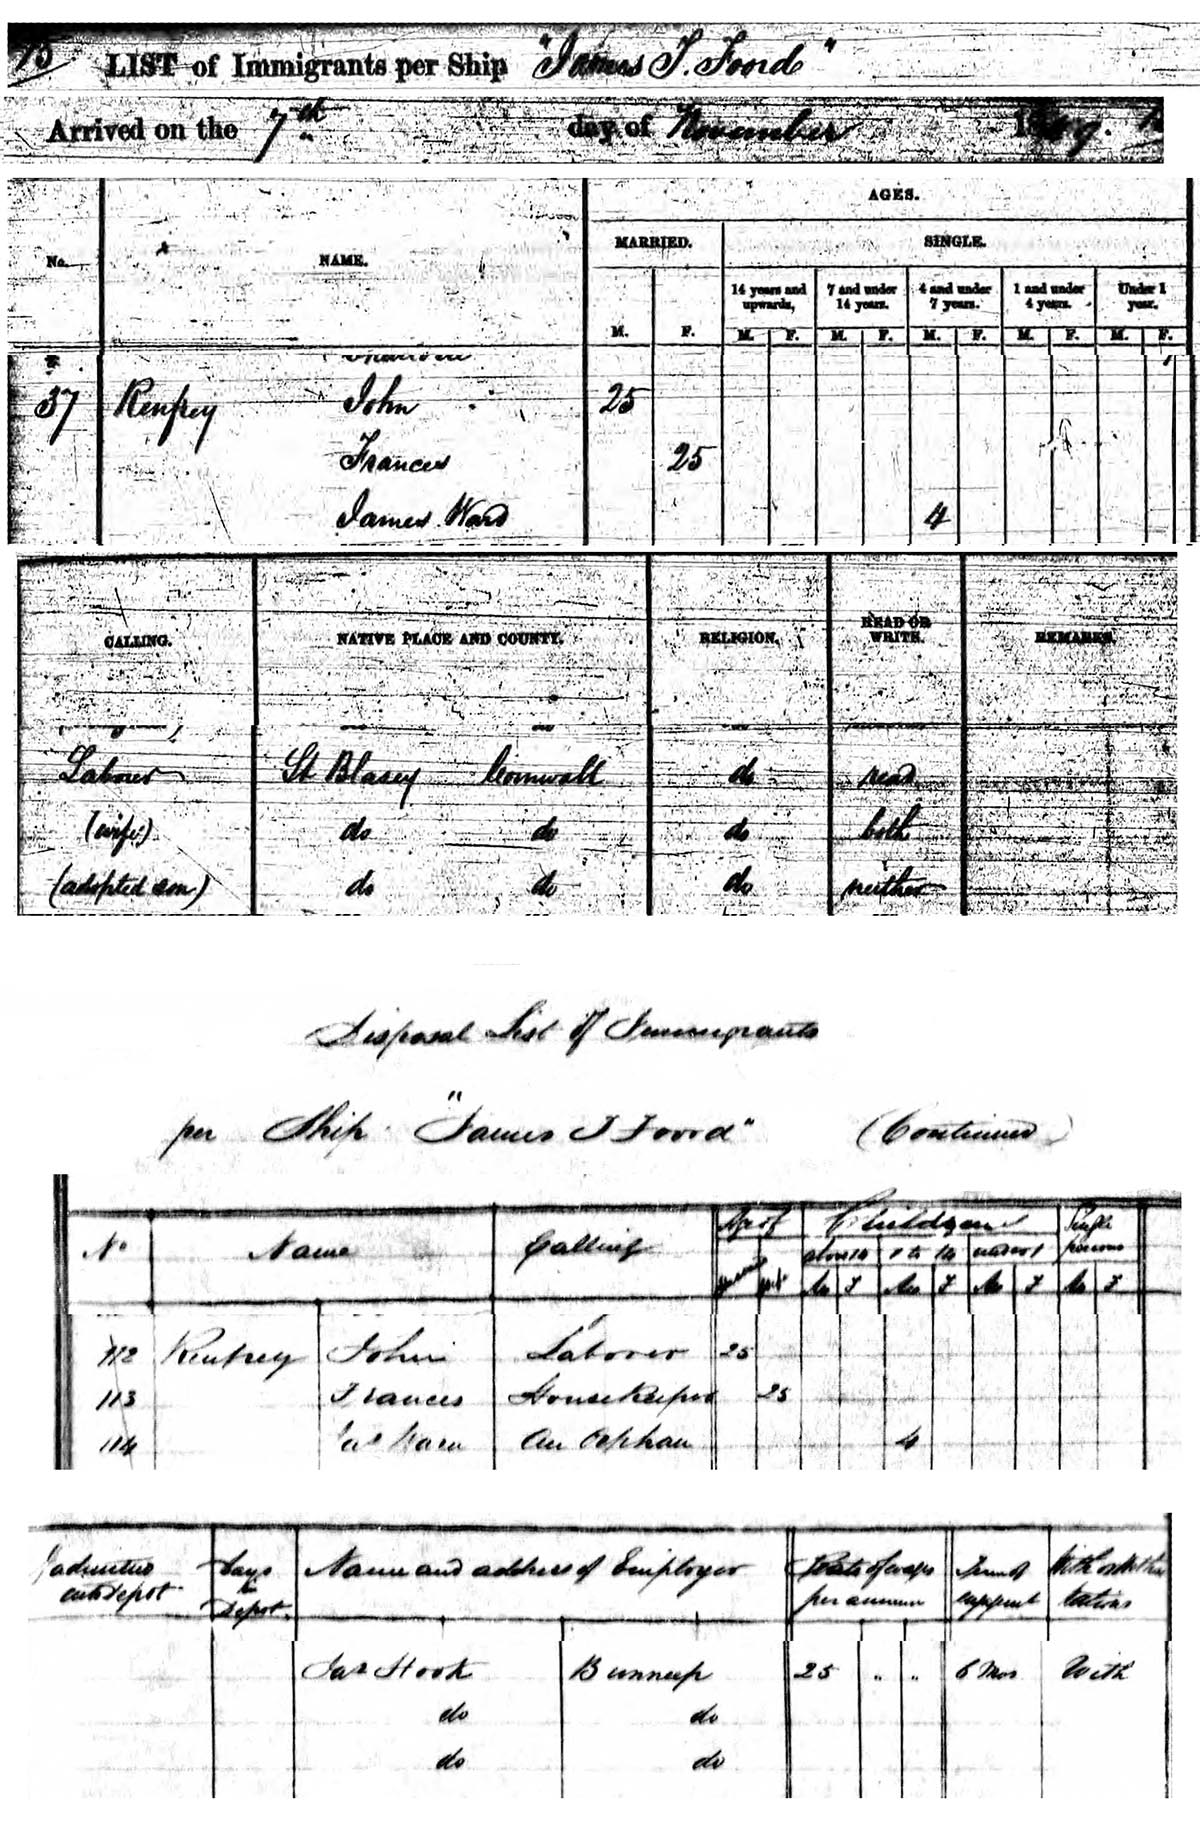 LIST of Immigrants per Ship "James T. Foord"
Arrived on the 7th day of November 1849.
AGES.
MARRIED. SINGLE.
No. NAME.
14 years and upwards, 7 and under 14 years. 4 and under 7 years. 1 and under 4 years. Under 1 year.
M. F. M. F. M. F. M. F. M. F. M. F.
37 Renfrey John 25
Frances 25
James Ward 4
CALLING. NATIVE PLACE AND COUNTY. RELIGION. READ OR WRITE. REMARKS.
Labourer St Blasey Cornwall do read
(wife) do do do both
(adopted son) do do do neither
Disposal List of Immigrants
per Ship "James T Foord" (Continued)
No Name Calling Age of Children Single persons
above 14 1 to 14 under 1
M F M F M F M F
112 Renfrey John Laborer 25
113 Frances Housekeeper 25
114 Jas An Orphan 4
admitted into depot Days in Depot. Name and address of Employer Rate of wages per annum Term of With or Without Rations
Jas Hook Bunneep 25 " " 6 Mos With
do do
do do